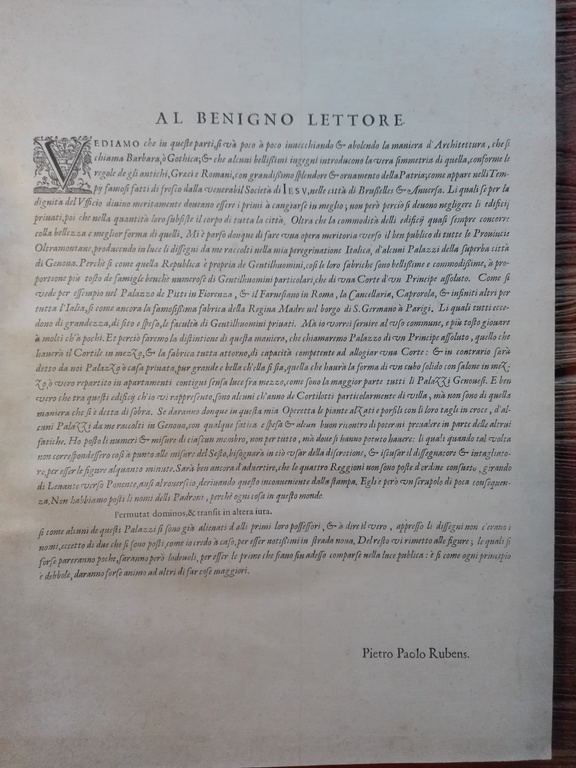 AL BENIGNO LETTORE.
VEDIAMO che in queste parti, si và poco à poco inuecchiando & abolendo la maniera d'Architettura, che si
chiama Barbara, ò Gothica; & che alcuni bellissimi ingegni introducono la vera simmetria di quella, conforme le
regole de gli antichi, Graeci e Romani, con grandissimo splendore & ornamento della Patria; come appare nelli Tem-
py famosi fatti di fresco dalla venerabil Società di IESV, nelle città di Brusselles & Anuersa. Li quali se per la
dignità del Vfficio diuino meritamente doutano essere i primi à cangiarsi in meglio; non però perciò si deuono negligere li edificij
priuati, poi che nella quantità loro subsiste il corpo di tutta la città. Oltra che la commodità delli edificij quasi sempre concorre
colla bellezza e meglior forma di quelli. Mi è parso donque di fare vna opera meritoria verso il ben publico di tutte le Prouincie
Oltramontane, producendo in luce li dissegni da me raccolti nella mia peregrinatione Italica, d'alcuni Palazzi della superba città
di Genoua. Perchè si come quella Republica è propria de Gentilhuomini, così le loro fabriche sono bellissime e commodissime, à pro-
portione più tosto de famiglie benchè numerose di Gentilhuomini particolari, che di vna Corte d'vn Principe assoluto. Come si
vede per essempio nel Palazzo de Pitti in Fiorenza, & il Farnesiano in Roma, la Cancellaria, Caprarola, & infiniti altri per
tutta l'Italia, si come ancora la famosissima fabrica della Regina Madre nel borgo di S. Germano à Parigi. Li quali tutti ecce-
dono di grandezza, di sito e spesa, le facultà di Gentilhuomini priuati. Mà io vorrei seruire al vso commune, e più tosto giouare
à molti ch'à pochi. Et perciò faremo la distintione di questa maniera, che chiamaremo Palazzo di vn Principe assoluto, quello che
hauerà il Cortile in mezzo, & la fabrica tutta attorno, di capacità competente ad alloggiar vna Corte: & in contrario sarà
detto da noi Palazzo ò casa priuata, pur grande e bella ch'ella si sia, quella che haurà la forma di vn cubo solido con salone in mez-
zo, ò vero repartito in apartamenti contigui senza luce fra mezzo, come sono la maggior parte tutti li Palazzi Genouesi. E ben
vero che tra questi edificij ch'io vi rappresento, sono alcuni ch'anno de Cortilotti particolarmente di villa, mà non sono di quella
maniera che si è detta di sobra. Se daranno donque in questa mia Operetta le piante alzati e porfili con li loro tagli in croce, d'al-
cuni Palazzi da me raccolti in Genoua, con qualque fatica e spesa & alcun buon riscontro di poterui preualere in parte delle altrui
fatiche. Ho posto li numeri & misure di ciascun membro, non per tutto, mà doue si hanno potuto hauere: li quali quando tal volta
non correspondessero così à punto alle misure del Sesto, bisognarà in ciò vsar della discretione, & iscusar il dissegnator & intagliato-
re, per esser le figure alquanto minute. Sarà ben ancora d'aduertire, che le quattro Reggioni non sono poste d'ordine consueto, girando
di Leuante verso Ponente, anzi al rouerscio, deriuando questo inconueniente dalla stampa. Egli è però vn scrupolo di poca consequen-
za. Non habbiamo posti li nomi delli Padroni, perchè ogni cosa in questo mondo.
Permutat dominos, & transit in altera iura.
si come alcuni de questi Palazzi si sono già alienati d'alli primi loro possessori, & à dire il vero, appresso li dissegni non c'erano i
nomi, eccetto di due che si sono posti, come io credo à caso, per esser notissimi in strada noua. Del resto vi rimetto alle figure; le quali si
forse pareranno poche, saranno però lodeuoli, per esser le prime che siano fin adesso comparse nella luce publica: è si come ogni principio
è debbole, daranno forse animo ad altri di far cose maggiori.
Pietro Paolo Rubens.